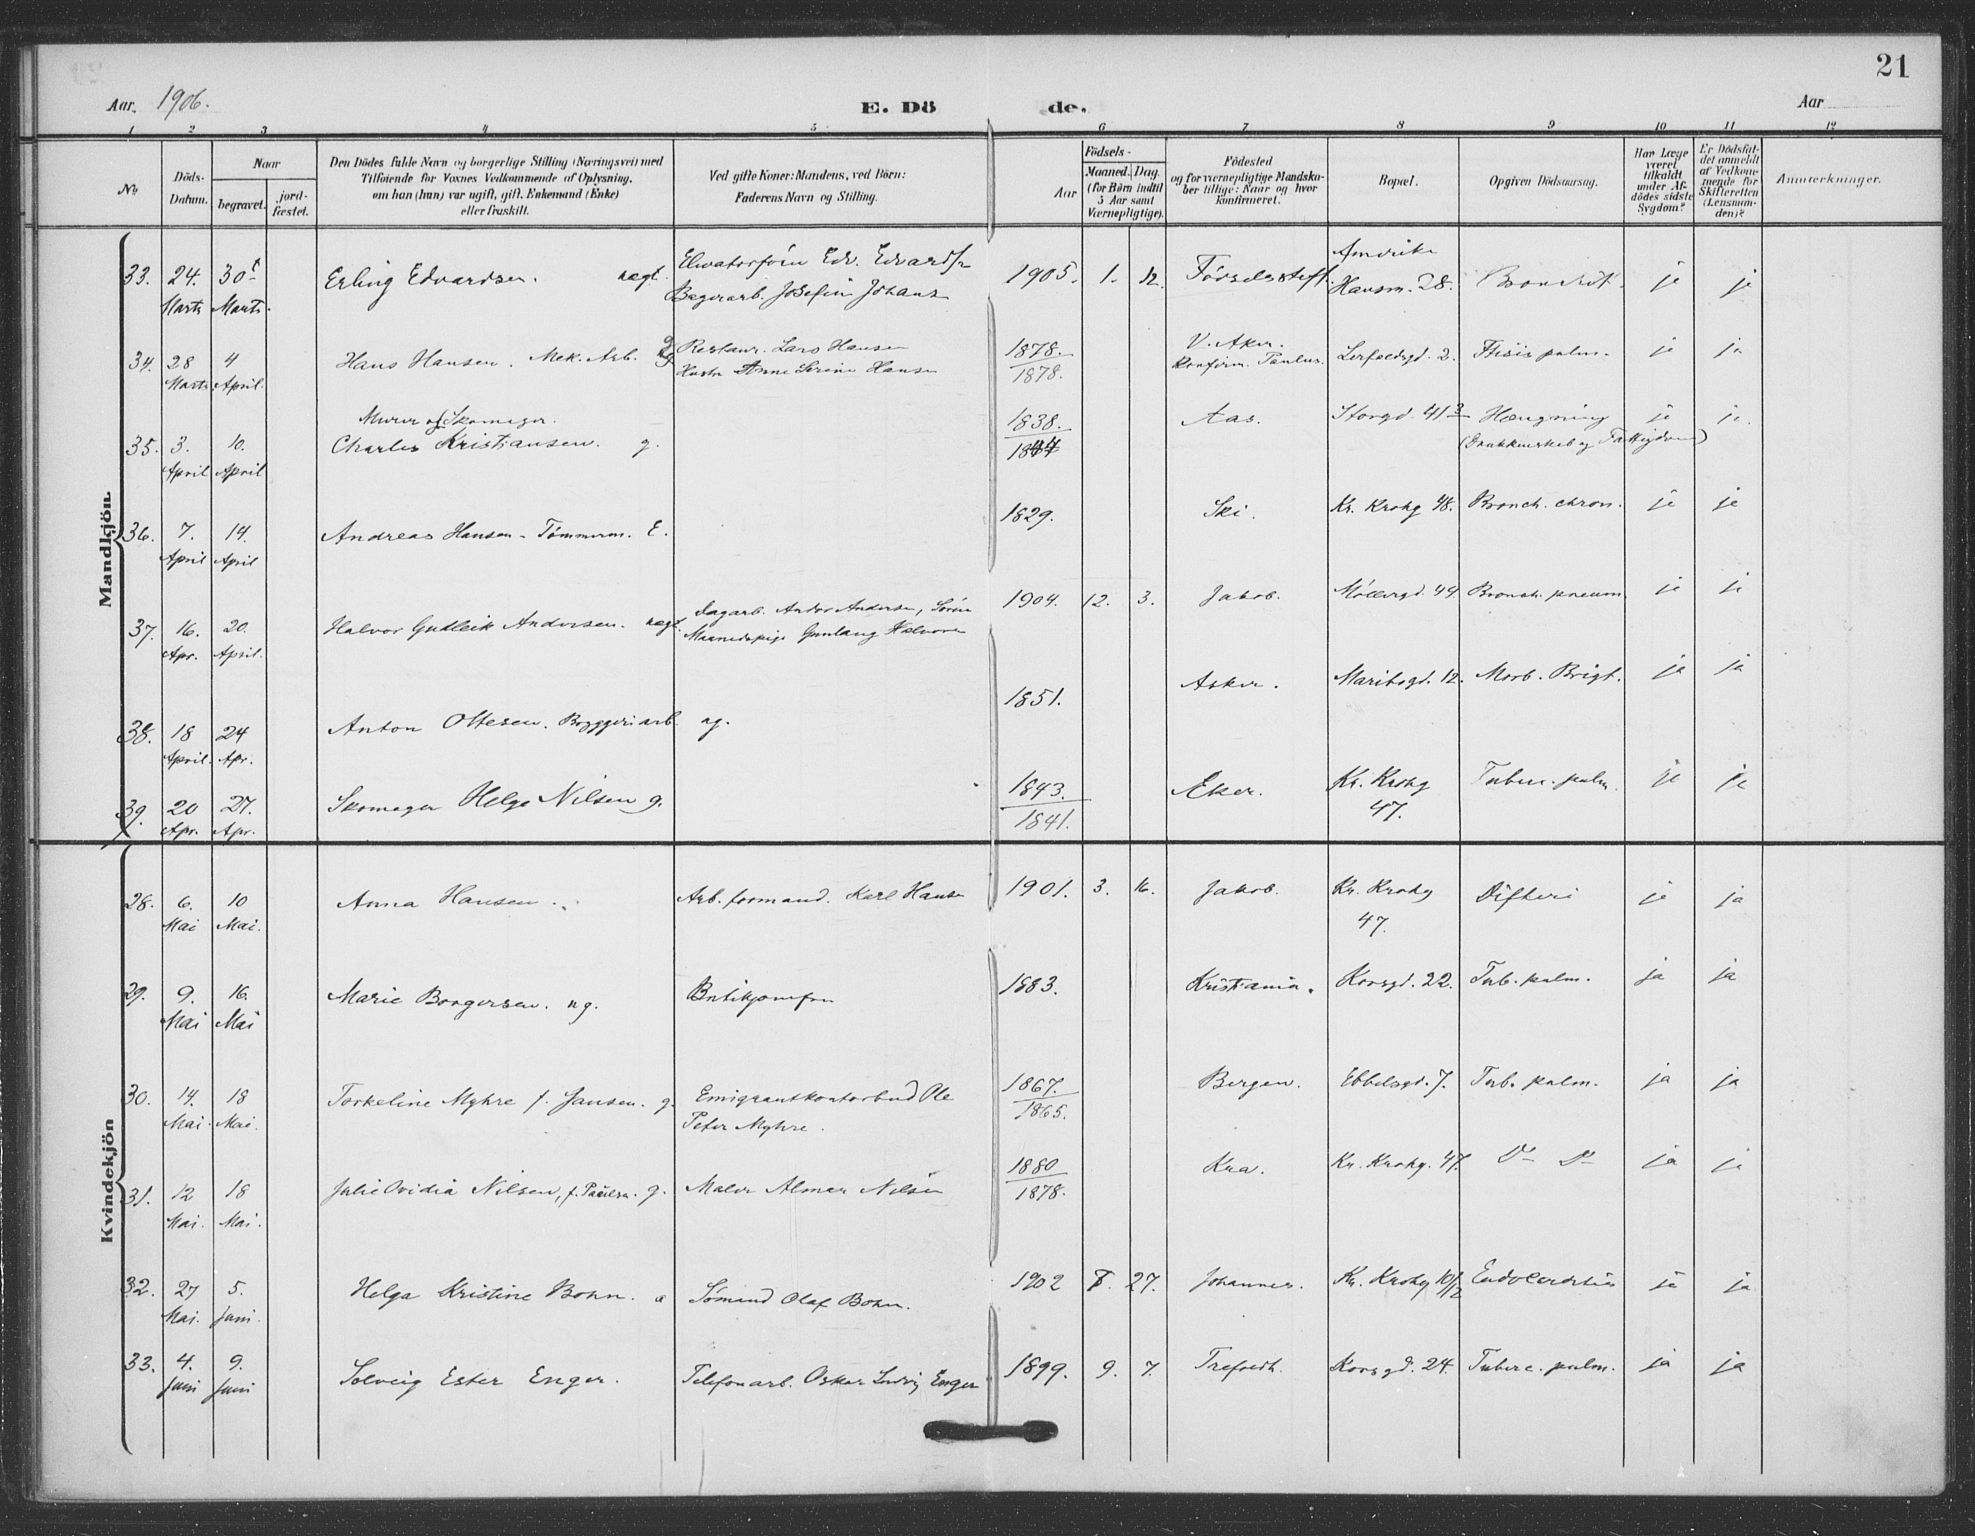 21
Aar. 1906.
E. Dö de.
Aar
1 2 3 4 5 6 7 8 9 10 11 12
No
Döds-Datum.
Naar
begravet.
jord-fæstet.
Den Dödes fulde Navn og borgerlige Stilling (Næringsvei) med
Tilföiende for Voxnes Vedkommende af Oplysning,
om han (hun) var ugift, gift, Enkemand (Enke)
eller fraskilt.
Ved gifte Koner: Mandens, ved Börn:
Faderens Navn og Stilling.
Födsels-
Aar
Maaned. Dag.
(for Börn indtil
5 Aar samt
Værnepligtige).
Födested
og for værnepligtige Mandska-
ber tillige: Naar og hvor
konfirmeret.
Bopæl.
Opgiven Dödsaarsag.
Har Læge
været
tilkaldt
under Af-
dödes sidste
Sygdom?
Er Dödsfal-
det anmeldt
af Vedkom-
mende for
Skifteretten
(Lensman-
den)?
Anmærkninger.
Mandkjön.
33. 24. Marts 30 Marts. Erling Edvardsen. uægt. Elevatorförer Edv. Edvards
Bagerarb. Josefin Johans 1905. 1. 12. Födselsstift. Hausm. 28. Bronchit. je je
34. 28 Marts 4 April. Hans Hansen. Mek. Arb. Restaur. Lars Hansen
Hustr Anne Serine Hansen 1878.
1878. V. Aker.
Konfirm. Paulus. Lerfaldsgd. 2. Ftisis pulm. je ja
35. 3. April 10. April Murer og Skomager.
Charles Kristiansen. g. 1838.
1844 Aas. Storgd. 41 Hængning
(Drukkenskab og Fattigdom) je je.
36. 7. April 14. April Andreas Hansen - Tömmerm. E. 1829. Ski. Kr. Krohg 48. Bronch. chron. je je
37. 16. Apr. 20. April. Halvor Gudleik Andersen. uægt. Dagarb. Andor Andersen,
Maanedspige Gunlaug Halvors 1904. 12. 3. Jakob. Möllergd. 44. Bronch. pneum. je je
38. 18 April. 24 Apr. Anton Ottesen. Bryggeriarb. ug. 1851. Asker. Maribogd. 12. Morb. Brigt. ja ja
39. 20 Apr. 27. Apr. Skomager Helge Nilsen g. 1843.
1841. Eker. Kr. Krohg
47. Tuberc. pulm. je je
Kvindekjön
28. 6. Mai 10 Mai. Anna Hansen. Arb. formand. Karl Hansen 1901. 3. 16. Jakob. Kr. Krohg
47. Difteri je ja
29. 9. Mai 16. Mai Marie Borgersen. ug. Butikjomfru 1883. Kristiania. Korsgd. 22. Tub. pulm. ja ja
30. 14. Mai. 18 Mai. Torkeline Myhre f. Jansen. g. Emigrantkontorbud Ole
Peter Myhre. 1867.
1865. Bergen. Ebbelsgd. 7. Tub. pulm. ja ja
31. 12 Mai. 18 Mai. Julie Ovidia Nilsen, f. Paulsen. g. Maler Almar Nilsen 1880
1878. Kra. Kr. Krohg. 47. Do Do ja je
32. 27 Mai. 5. Juni. Helga Kristine Bohn. Sömand Olaf Bohn. 1902 27. Johannes. Kr. Krohg 10/12 Endocarditis je ja
33. 4. Juni 9. Juni Solveig Ester Enger. Telefonarb. Oskar Ludvig Enger 1899. 9. 7. Trefoldh. Korsgd. 24. Tuberc. pulm. ja ja